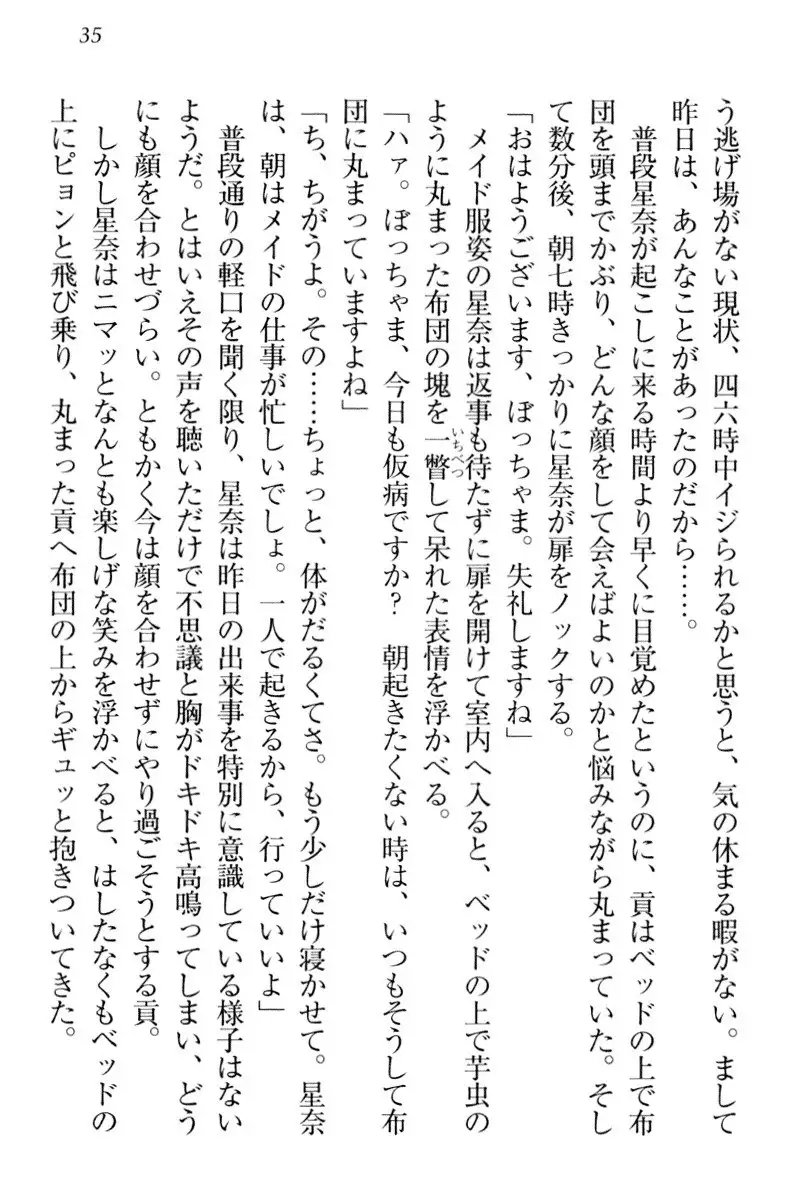 35
う逃げ場がない現状、四六時中イジられるかと思うと、気の休まる暇がない。まして
昨日は、あんなことがあったのだから……。
普段星奈が起こしに来る時間より早くに目覚めたというのに、貢はベッドの上で布
団を頭までかぶり、どんな顔をして会えばよいのかと悩みながら丸まっていた。そし
て数分後、朝七時きっかりに星奈が扉をノックする。
「おはようございます、ぼっちゃま。失礼しますね」
メイド服姿の星奈は返事も待たずに扉を開けて室内へ入ると、ベッドの上で芋虫の
ように丸まった布団の塊を一瞥いちべつして呆れた表情を浮かべる。
「ハァ。ぼっちゃま、今日も仮病ですか?　朝起きたくない時は、いつもそうして布
団に丸まっていますよね」
「ち、ちがうよ。その……ちょっと、体がだるくてさ。もう少しだけ寝かせて。星奈
は、朝はメイドの仕事が忙しいでしょ。一人で起きるから、行っていいよ」
普段通りの軽口を聞く限り、星奈は昨日の出来事を特別に意識している様子はない
ようだ。とはいえその声を聴いただけで不思議と胸がドキドキ高鳴ってしまい、どう
にも顔を合わせづらい。ともかく今は顔を合わせずにやり過ごそうとする貢。
しかし星奈はニマッとなんとも楽しげな笑みを浮かべると、はしたなくもベッドの
上にピョンと飛び乗り、丸まった貢へ布団の上からギュッと抱きついてきた。